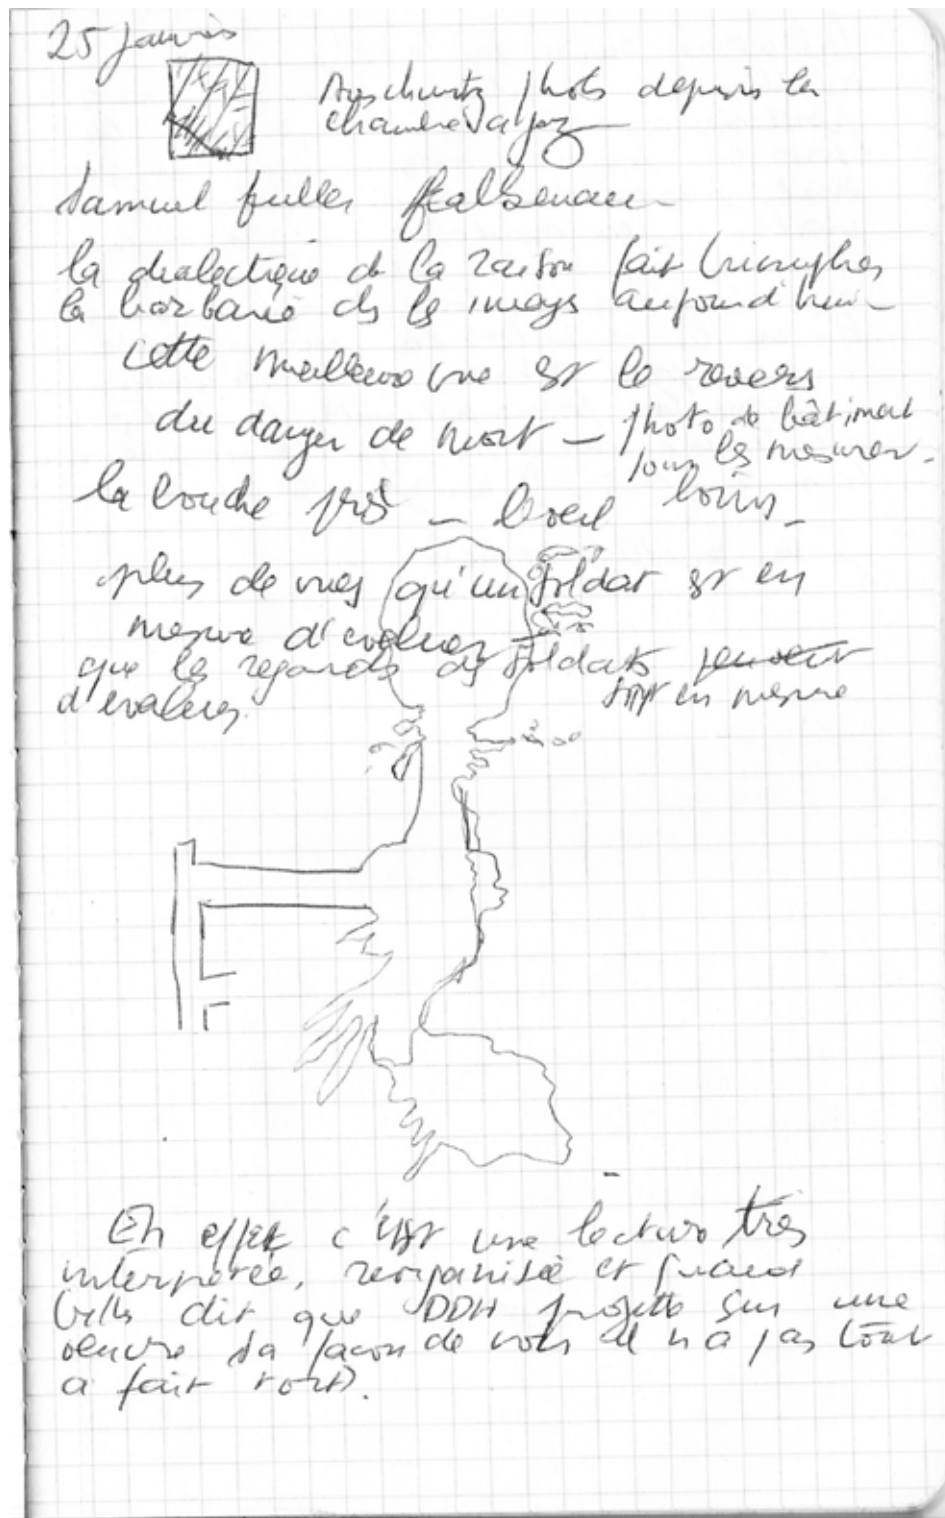 25 janvier
Auschwitz photo depuis la
chambre à gaz
Samuel Fuller Falkenau
la dialectique de la raison fait triompher
la barbarie ds les images aujourd'hui
cette meilleure vue est le revers
du danger de mort — photo de bâtiment
pour les mesurer.
la bouche près — l'oeil loin —
plus de vues qu'un soldat est en
mesure d'évaluer
que les regards des soldats peuvent
sont en mesure
d'évaluer.
En effet c'est une lecture très
interprétée, réorganisée et quand
dit que DDH projette sur une
oeuvre sa façon de voir il n'a pas tout
à fait tort.